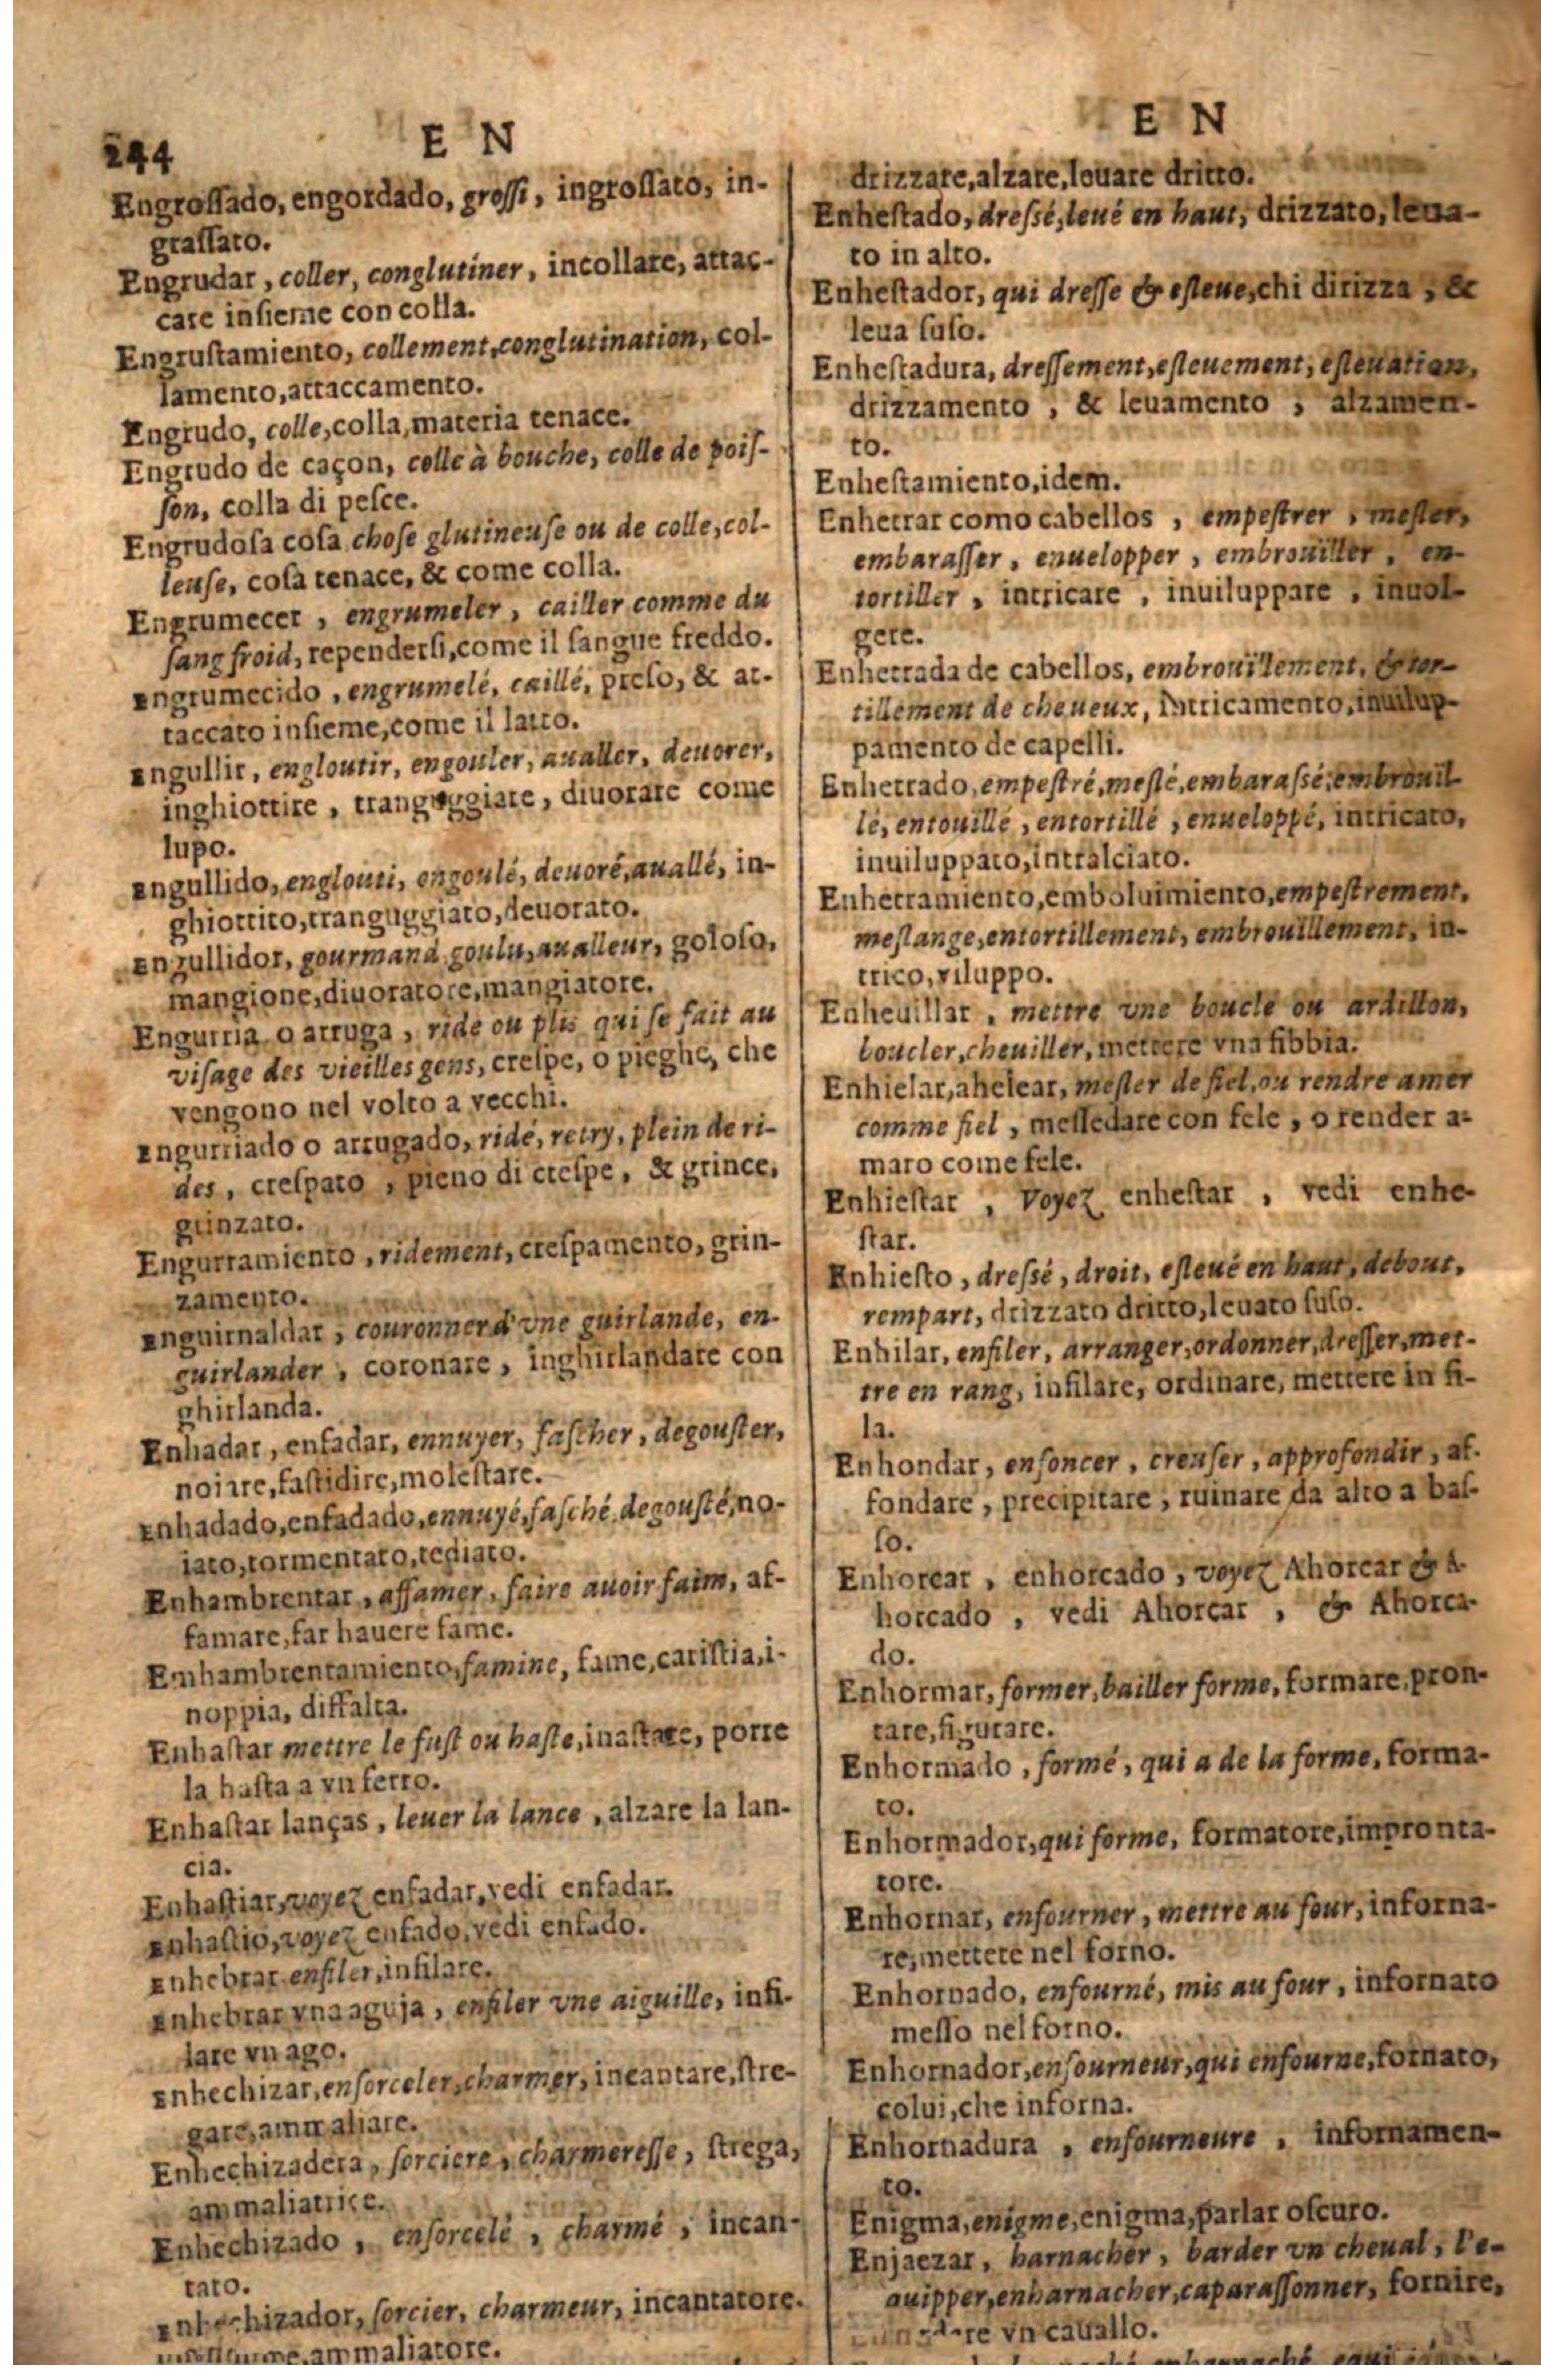 244
E N
Engroſſado, engordado, groſſi, ingroſſato, in-
graſſato.
Engrudar, coller, conglutiner, incollare, attac-
care inſieme con colla.
Engruſtamiento, collement, conglutination, col-
lamento, attaccamento.
Engrudo, colle, colla, materia tenace.
Engrudo de caçon, colle à bouche, colle de poiſ-
ſon, colla di peſce.
Engrudoſa coſa choſe glutineuſe ou de colle, col-
leuſe, coſa tenace, & come colla.
Engrumecer, engrumeler, cailler comme du
ſang froid, rependerſi, come il ſangue freddo.
Engrumecido, engrumelé, caillé, preſo, & at-
taccato inſieme, come il latto.
Engullir, engloutir, engouler, aualler, deuorer,
inghiottire, tranguggiare, diuorare come
lupo.
Engullido, englouti, engoulé, deuoré, auallé, in-
ghiottito, tranguggiato, deuorato.
Engullidor, gourmand goulu, aualleur, goloſo,
mangione, diuoratore, mangiatore.
Engurria o arruga, ride ou plis qui ſe fait au
viſage des vieilles gens, creſpe, o pieghe, che
vengono nel volto a vecchi.
Engurriado o arrugado, ridé, retry, plein de ri-
des, creſpato, pieno di creſpe, & grince,
grinzato.
Engurramiento, ridement, creſpamento, grin-
zamento.
Enguirnaldar, couronner d'vne guirlande, en-
guirlander, coronare, inghirlandare con
ghirlanda.
Enhadar, enfadar, ennuyer, faſcher, degouſter,
noiare, faſtidire, moleſtare.
Enhadado, enfadado, ennuyé, faſché, degouſté, no-
iato, tormentato, tediato.
Enhambrentar, affamer, faire auoir faim, af-
famare, far hauere fame.
Enhambrentamiento, famine, fame, cariſtia, i-
noppia, diffalta.
Enhaſtar mettre le fuſt ou haſte, inaſtare, porre
la haſta a vn ferro.
Enhaſtar lanças, leuer la lance, alzare la lan-
cia.
Enhaſtiar, voyez enfadar, vedi enfadar.
Enhaſtio, voyez enfado, vedi enfado.
Enhebrar enfiler, infilare.
Enhebrar vna aguja, enfiler vne aiguille, infi-
lare vn ago.
Enhechizar, enſorceler, charmer, incantare, ſtre-
gare, ammaliare.
Enhechizadera, ſorciere, charmereſſe, ſtrega,
ammaliatrice.
Enhechizado, enſorcelé, charmé, incan-
tato.
Enhechizador, ſorcier, charmeur, incantatore.
ammaliatore.
E N
drizzare, alzare, louare dritto.
Enheſtado, dreſsé, leué en haut, drizzato, leua-
to in alto.
Enheſtador, qui dreſſe & eſleue, chi dirizza, &
leua ſuſo.
Enheſtadura, dreſſement, eſleuement, eſleuation,
drizzamento, & leuamento, alzamen-
to.
Enheſtamiento, idem.
Enhetrar como cabellos, empeſtrer, meſler,
embaraſſer, enuelopper, embrouïller, en-
tortiller, intricare, inuiluppare, inuol-
gere.
Enhetrada de cabellos, embrouïllement, & tor-
tillement de cheueux, intricamento, inuilup-
pamento de capelli.
Enhetrado, empeſtré, meſlé, embaraſsé, embrouïl-
lé, entouillé, entortillé, enueloppé, intricato,
inuiluppato, intralciato.
Enhetramiento, emboluimiento, empeſtrement,
meſlange, entortillement, embrouïllement, in-
trico, viluppo.
Enheuillar, mettre vne boucle ou ardillon,
boucler, cheuiller, mettere vna fibbia.
Enhielar, ahelear, meſler de fiel, ou rendre amer
comme fiel, meſſedare con fele, o render a-
maro come fele.
Enhieſtar, Voyez enheſtar, vedi enhe-
ſtar.
Enhieſto, dreſsé, droit, eſleué en haut, debout,
rempart, drizzato dritto, leuato ſuſo.
Enhilar, enfiler, arranger, ordonner, dreſſer, met-
tre en rang, infilare, ordinare, mettere in fi-
la.
Enhondar, enfoncer, creuſer, approfondir, af-
fondare, precipitare, ruinare da alto a baſ-
ſo.
Enhorcar, enhorcado, voyez Ahorcar & A-
horcado, vedi Ahorcar, & Ahorca-
do.
Enhormar, former, bailler forme, formare, pron-
tare, figurare.
Enhormado, formé, qui a de la forme, forma-
to.
Enhormador, qui forme, formatore, impronta-
tore.
Enhornar, enfourner, mettre au four, inforna-
re, mettere nel forno.
Enhornado, enfourné, mis au four, infornato
meſſo nel forno.
Enhornador, enfourneur, qui enfourne, fornato,
colui, che inforna.
Enhornadura, enfourneure, infornamen-
to.
Enigma, enigme, enigma, parlar oſcuro.
Enjaezar, harnacher, barder vn cheual, l'e-
quipper, enharnacher, caparaſſonner, fornire,
vn cauallo.